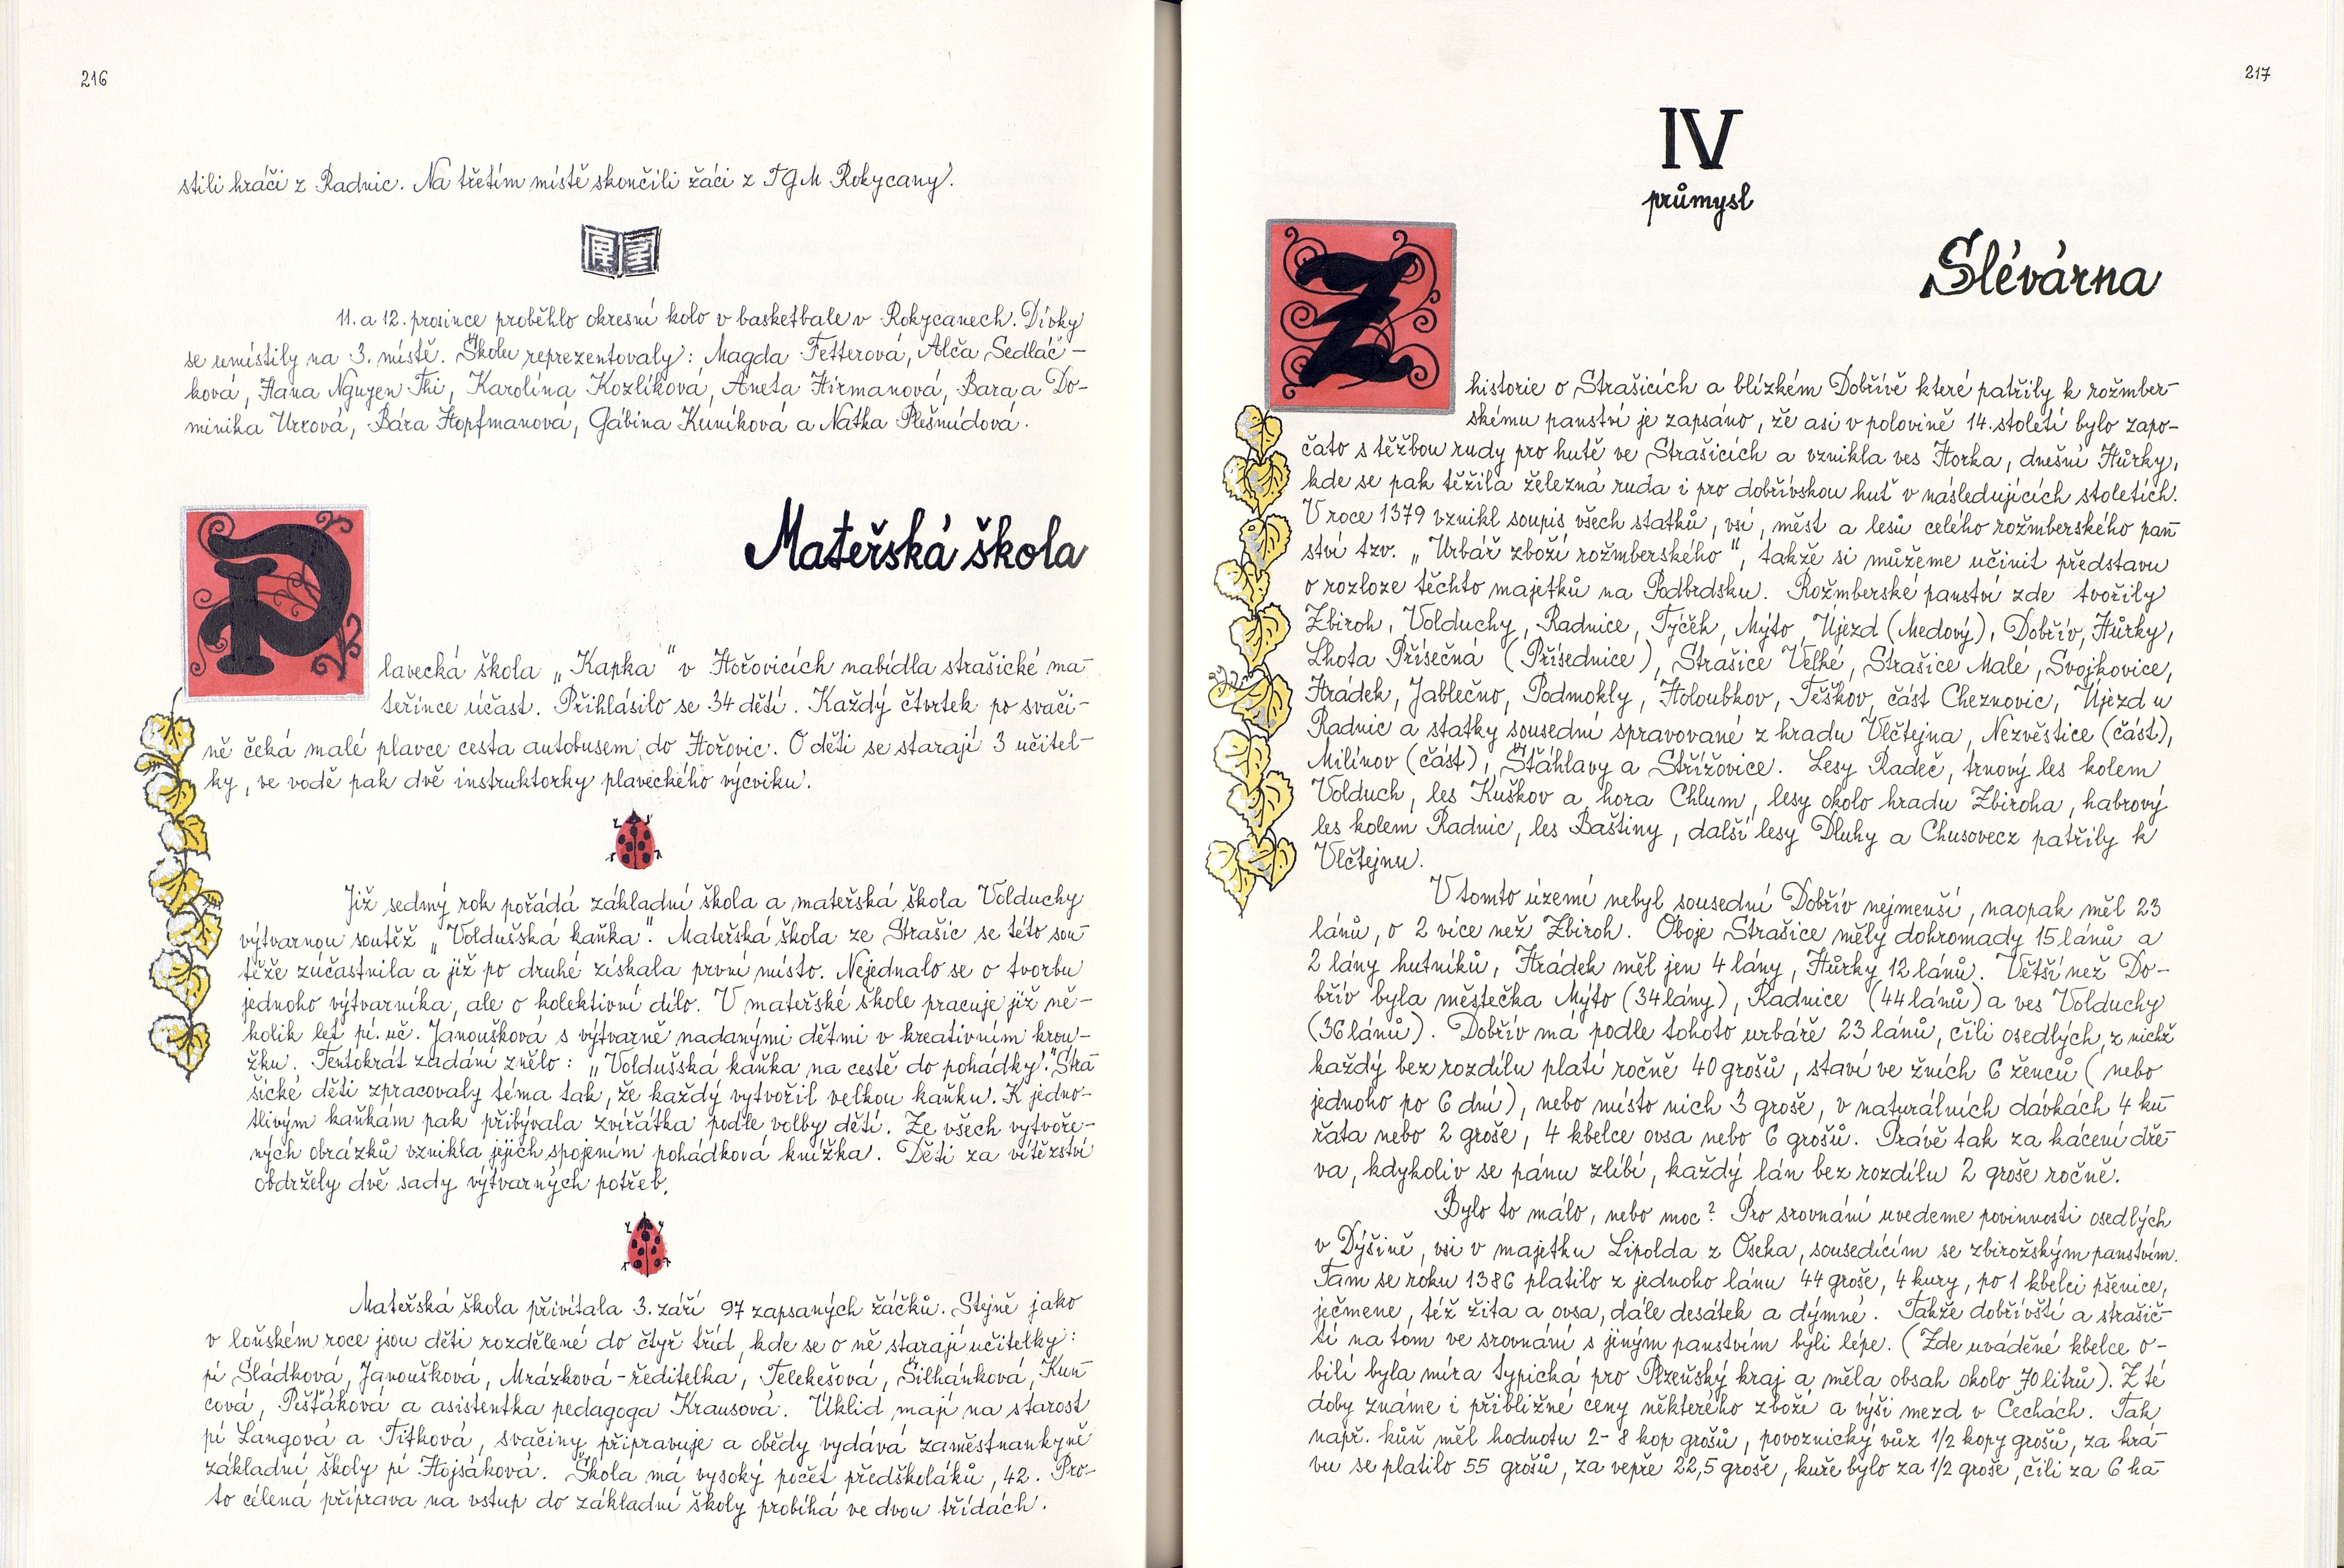 216
stili hráči z Radnic. Na třetím místě skončili žáci z TGM Rokycany.
11. a 12. prosince proběhlo okresní kolo v basketbale v Rokycanech. Dívky
se umístily na 3. místě. Školu reprezentovaly: Magda Fetterová, Alča Sedláč-
ková, Hana Nguyen Thi, Karolína Kozlíková, Aneta Hirmanová, Bara a Do-
minika Urxová, Bára Hopfmanová, Gábina Kuníková a Natka Plešmídová.
Mateřská škola
P
lavecká škola „Kapka" v Hořovicích nabídla strašické ma-
teřince účast. Přihlásilo se 34 dětí. Každý čtvrtek po svači-
ně čeká malé plavce cesta autobusem do Hořovic. O děti se starají 3 učitel-
ky, ve vodě pak dvě instruktorky plaveckého výcviku.
Již sedmý rok pořádá základní škola a mateřská škola Volduchy
výtvarnou soutěž „Voldušská kaňka". Mateřská škola ze Strašic se této sou-
těže zúčastnila a již po druhé získala první místo. Nejednalo se o tvorbu
jednoho výtvarníka, ale o kolektivní dílo. V mateřské škole pracuje již ně-
kolik let pí. uč. Janoušková s výtvarně nadanými dětmi v kreativním krou-
žku. Tentokrát zadání znělo: „Voldušská kaňka na cestě do pohádky." Stra-
šické děti zpracovaly téma tak, že každý vytvořil velkou kaňku. K jedno-
tlivým kaňkám pak přibývala zvířátka podle volby dětí. Ze všech vytvoře-
ných obrázků vznikla jejich spojením pohádková knížka. Děti za vítězství
obdržely dvě sady výtvarných potřeb.
Mateřská škola přivítala 3. září 97 zapsaných žáčků. Stejně jako
v loňském roce jsou děti rozdělené do čtyř tříd, kde se o ně starají učitelky:
pí Sládková, Janoušková, Mrázková-ředitelka, Telekešová, Šilhánková, Kun-
cová, Pišťáková a asistentka pedagoga Krausová. Úklid mají na starost
pí Langová a Titková, svačiny připravuje a obědy vydává zaměstnankyně
základní školy pí Hojsáková. Škola má vysoký počet předškoláků, 42. Pro-
to cílená příprava na vstup do základní školy probíhá ve dvou třídách.
217
IV
průmysl
Slévárna
Z
historie o Strašicích a blízkém Dobřívě které patřily k rožmber-
skému panství je zapsáno, že asi v polovině 14. století bylo zapo-
čato s těžbou rudy pro hutě ve Strašicích a vznikla ves Horka, dnešní Hůrky,
kde se pak těžila železná ruda i pro dobřívskou huť v následujících stoletích.
V roce 1379 vznikl soupis všech statků, vsí, měst a lesů celého rožmberského pan-
ství tzv. „Urbář zboží rožmberského", takže si můžeme učinit představu
o rozloze těchto majetků na Podbrdsku. Rožmberské panství zde tvořily
Zbiroh, Volduchy, Radnice, Týček, Mýto, Újezd (Medový), Dobřív, Hůrky,
Lhota Přísečná (Přísednice), Strašice Velké, Strašice Malé, Svojkovice,
Hrádek, Jablečno, Podmokly, Holoubkov, Těškov, část Cheznovic, Újezd u
Radnic a statky sousední spravované z hradu Vlčtejna, Nezvěstice (část),
Milínov (část), Šťáhlavy a Střížovice. Lesy Radeč, trnový les kolem
Volduch, les Kuškov a hora Chlum, lesy okolo hradu Zbiroha, habrový
les kolem Radnic, les Baštiny, další lesy Dluhy a Chusovecz patřily k
Vlčtejnu.
V tomto území nebyl sousední Dobřív nejmenší, naopak měl 23
lánů, o 2 více než Zbiroh. Oboje Strašice měly dohromady 15 lánů a
2 lány hutníků, Hrádek měl jen 4 lány, Hůrky 12 lánů. Větší než Do-
břív byla městečka Mýto (34 lány), Radnice (44 lánů) a ves Volduchy
(36 lánů). Dobřív má podle tohoto urbáře 23 lánů, čili osedlých, z nichž
každý bez rozdílu platí ročně 40 grošů, staví ve žních 6 ženců (nebo
jednoho po 6 dní), nebo místo nich 3 groše, v naturálních dávkách 4 ku-
řata nebo 2 groše, 4 kbelce ovsa nebo 6 grošů. Právě tak za kácení dře-
va, kdykoliv se pánu zlíbí, každý lán bez rozdílu 2 groše ročně.
Bylo to málo, nebo moc? Pro srovnání uvedeme povinnosti osedlých
v Dýšině, vsi v majetku Lipolda z Oseka, sousedícím se zbirožským panstvím.
Tam se roku 1386 platilo z jednoho lánu 44 groše, 4 kury, po 1 kbelci pšenice,
ječmene, též žita a ovsa, dále desátek a dýmné. Takže dobřívští a strašič-
tí na tom ve srovnání s jiným panstvím byli lépe. (Zde uváděné kbelce o-
bilí byla míra typická pro Plzeňský kraj a měla obsah okolo 70 litrů). Z té
doby známe i přibližné ceny některého zboží a výši mezd v Čechách. Tak
např. kůň měl hodnotu 2-8 kop grošů, povoznický vůz 1/2 kopy grošů, za krá-
vu se platilo 55 grošů, za vepře 22,5 groše, kuře bylo za 1/2 groše, čili za 6 ha-